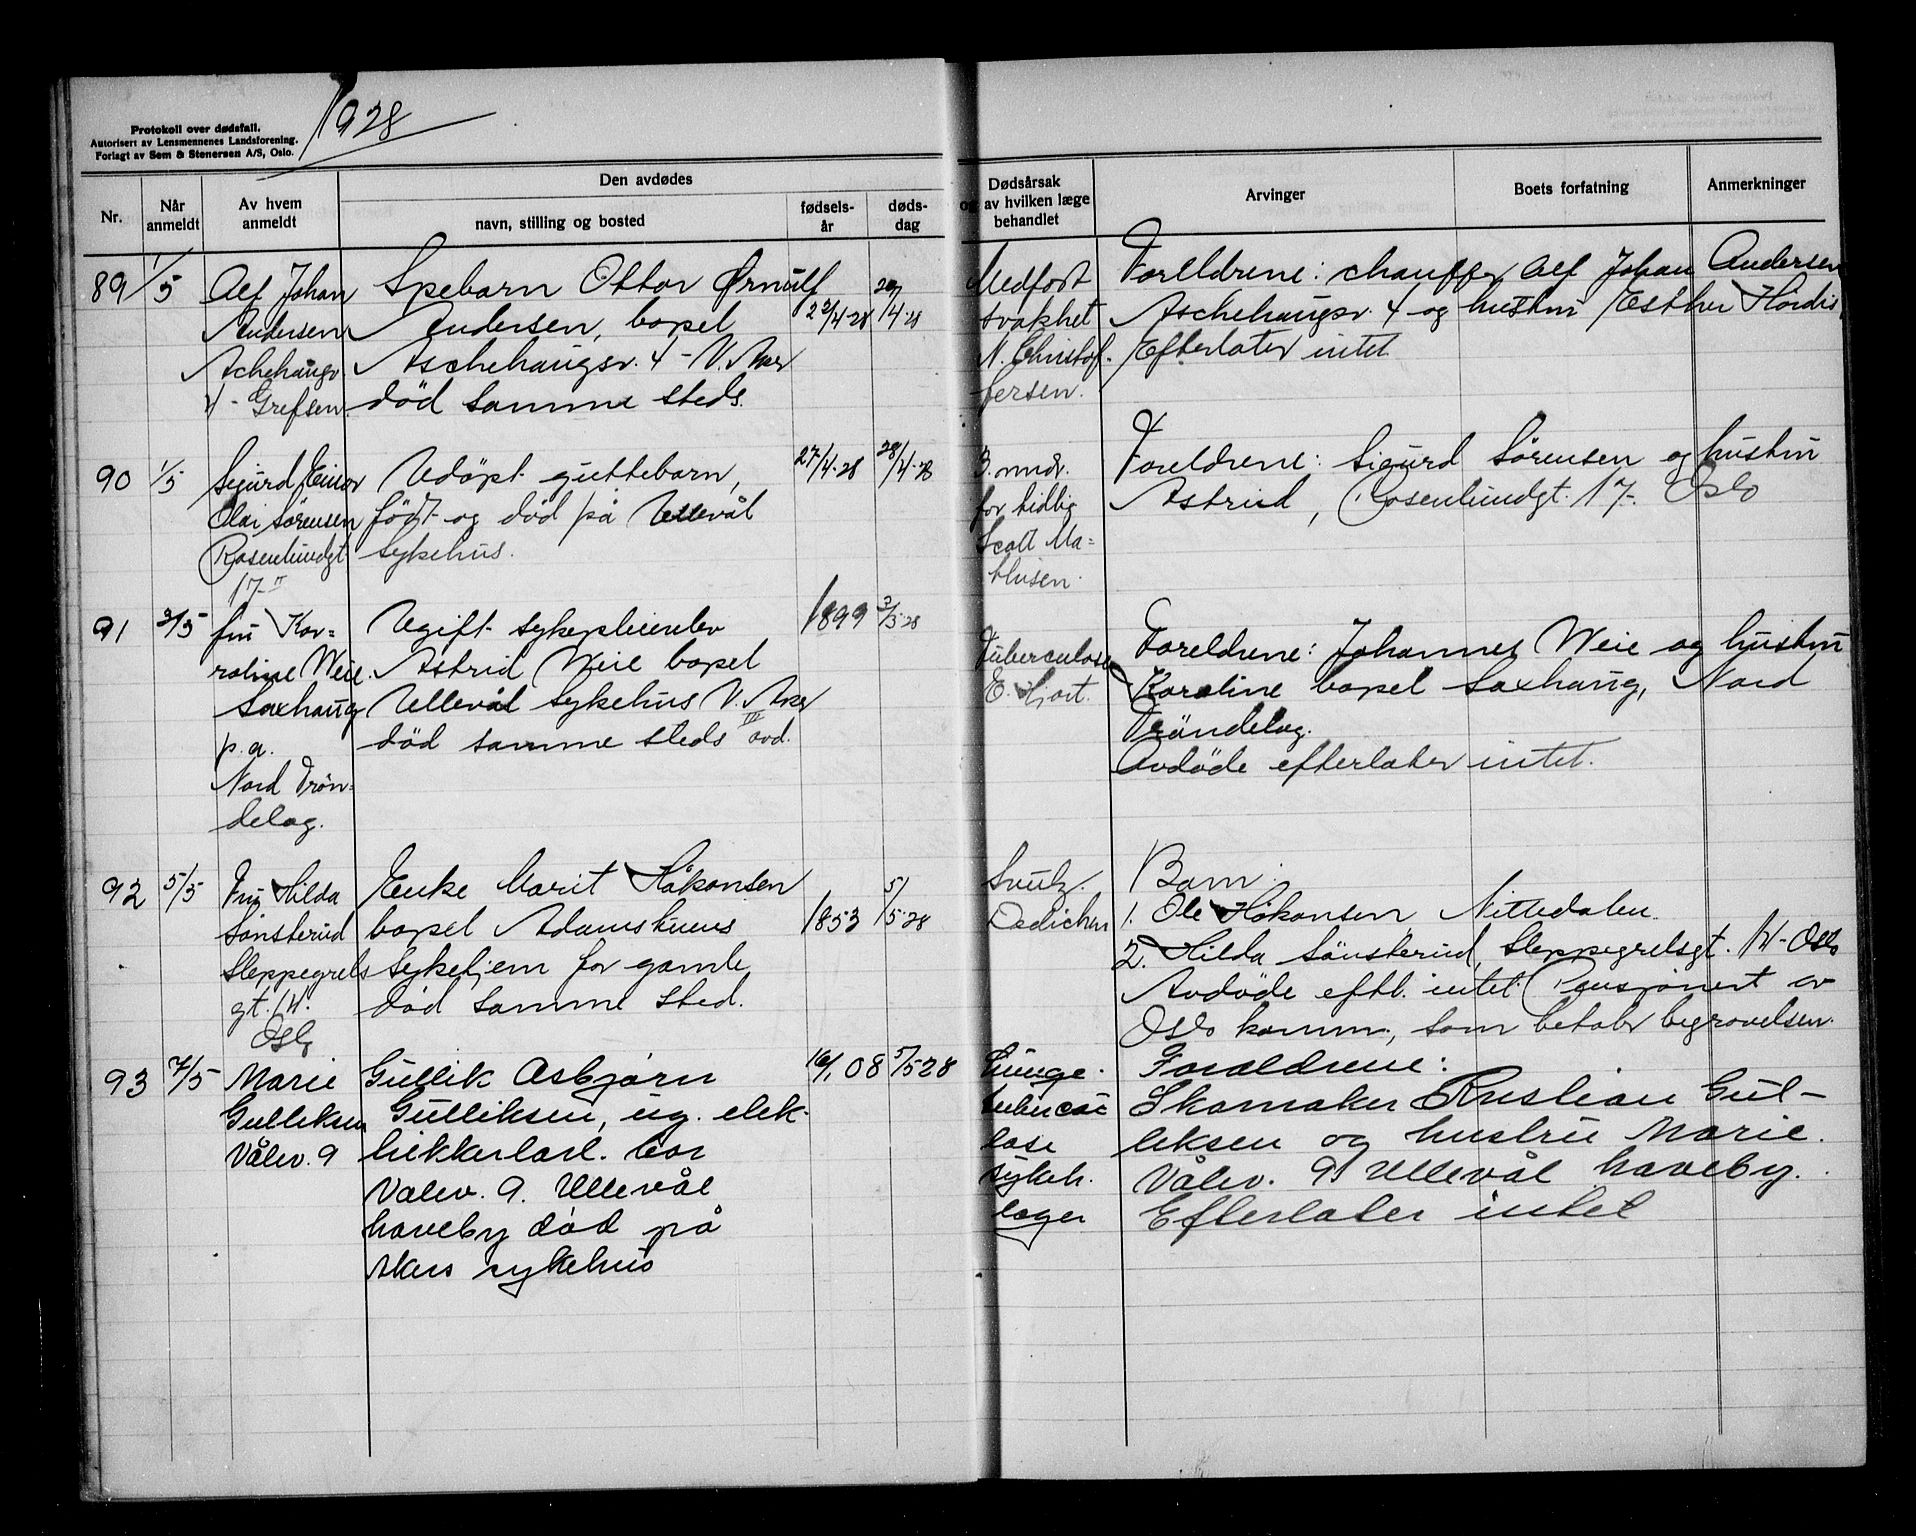 1928
Protokoll over dødsfall.
Autorisert av Lensmennenes Landsforening.
Forlagt av Sem & Stenersen A/S, Oslo.
Nr.
Når anmeldt
Av hvem anmeldt
Den avdødes
navn, stilling og bosted
fødsels-år
døds-dag
Dødsårsak
og av hvilken læge
behandlet
Arvinger
Boets forfatning
Anmerkninger
89
1/5
Alf Johan
Andersen
Achehaugv
4 - Grefsen
Spebarn Ottar Ørnulf
Andersen, bopel
Aschehaugsv. 4 - V. Aker
død samme steds.
22/4-28
29/4-28
Medfødt
svakhet
N. Christof-
fersen.
Foreldrene: chauffør Alf Johan Andersen
Aschehaugsv. 4 og hustru Esther Hørdis
Efterlater intet
90
1/5
Sigurd Einar
Olai Sørensen
Rosenlundgt
17 II
Udøpt guttebarn,
født og død på Ullevål
sykehus.
27/4-28
28/4-28
3. mndr.
for tidlig
Scott Ma=
thisen.
Foreldrene: Sigurd Sørensen og hustru
Astrid, Rosenlundgt. 17 - Oslo
91
3/5
fru Ka=
roline Weie
Saxhaug
p.a.
Nord Trøn=
delag.
Ugift sykepleierelev
Astrid Weie bopel
Ullevål sykehus V. Aker
død samme steds avd.
1899
3/5-28
Tuberculose
E. Hjort.
Foreldrene: Johannes Weie og hustru
Karoline bopel Saxhaug, Nord
Trøndelag.
Avdøde efterlater intet.
92
5/5
Fru Hilda
Sønsterud
Sleppegrels
gt. 14.
Oslo
Enke Marit Håkonsen
bopel Adamstuens
sykehjem for gamle
død samme sted.
1853
5/5-28
Dedichen
Barn:
1. Ole Håkonsen Nittedalen.
2. Hilda Sønsterud, Sleppegrelsgt. 14 - Oslo
Avdøde eftl. intet. Pensjonert av
Oslo komm., som betaler begravelsen.
93
7/5
Marie
Gulliksen
Vålev. 9
Gullik Asbjørn
Gulliksen, ug. elek-
trikkerlærl. bor
Vålev. 9. Ullevål
haveby død på
Akers sykehus
08
5/5-28
Lunge-
tubercu
lose
sykeh.
læger
Foreldrene:
Skomaker Kristian Gul-
liksen og hustru Marie.
Vålev. 9 Ullevål haveby.
Efterlater intet